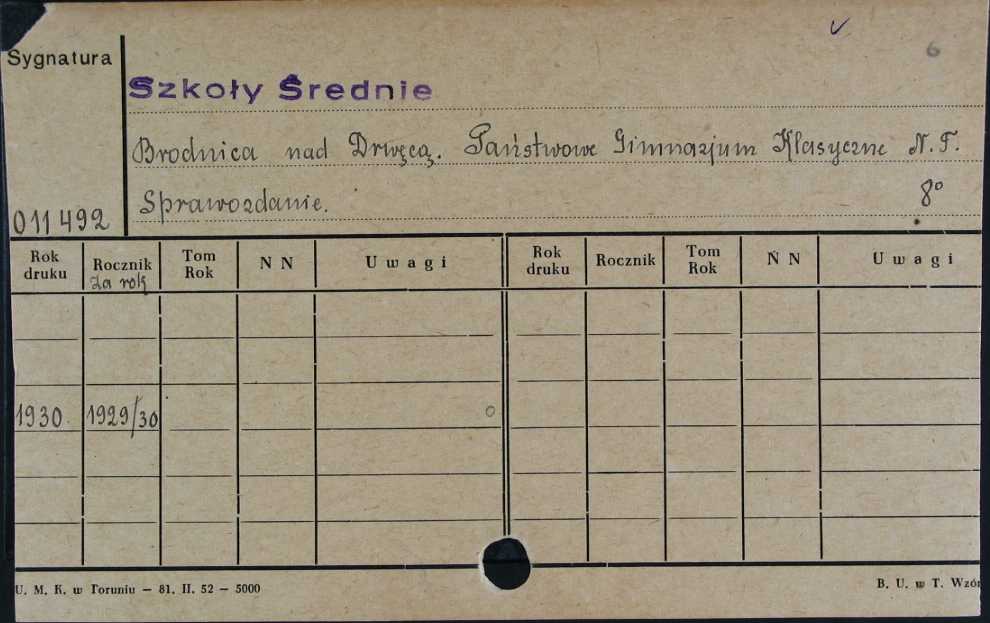 6
Sygnatura
Szkoły Średnie
Brodnica nad Drwęcą. Państwowe Gimnazjum Klasyczne N. T.
Sprawozdanie. 8°
011492
Rok druku Rocznik za rok Tom Rok N N Uwagi Rok druku Rocznik Tom Rok N N Uwagi
1930 1929/30
U. M. K. w Toruniu — 81. II. 52 — 5000 B. U. w T. Wzór